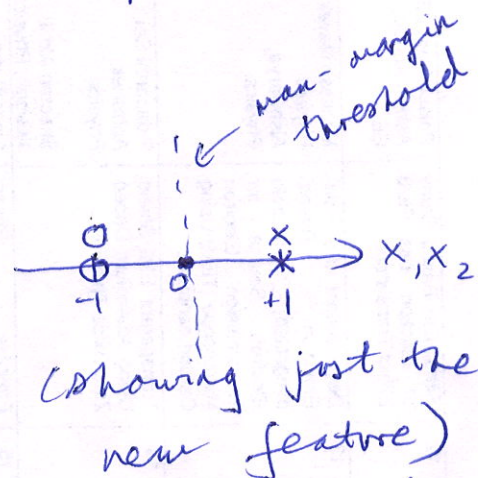 max-margin
threshold
O x
x₁x₂
-1 0 +1
(showing just the
new feature)